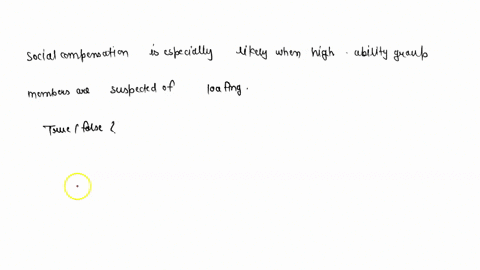 Social compensation is especially likely when high-ability group
members are suspected of loafing.
True/false?